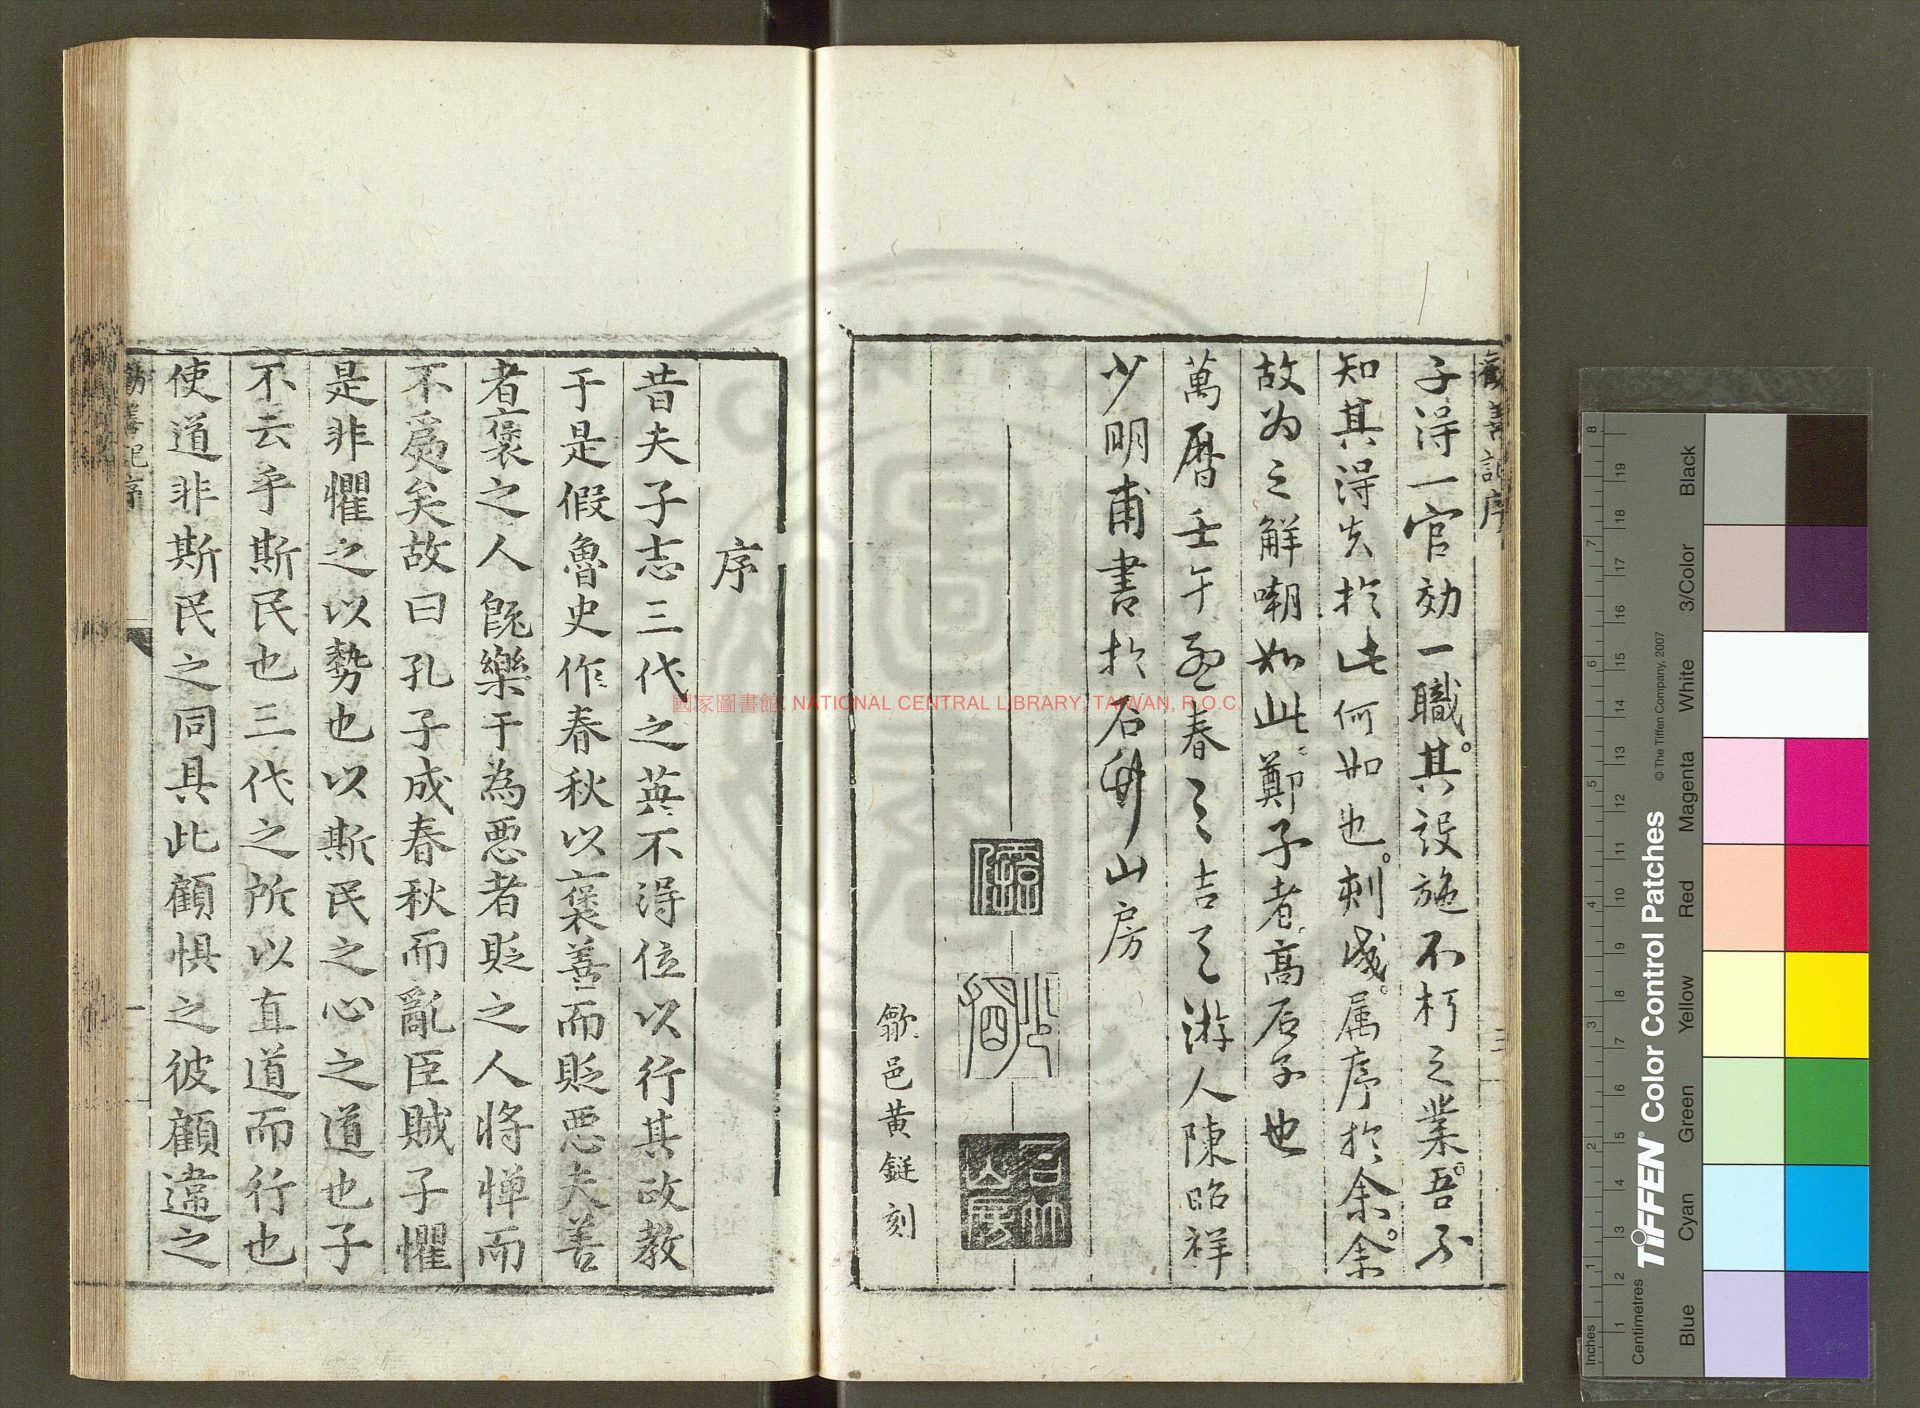 勸善記序
子淂一官效一職其設施不朽之業吾不
知其淂失扵此何如也刻成属序扵余余
故为之解嘲如此鄭子者高石子也
萬曆壬午孟春之吉之游人陳昭祥
少明甫書扵石竹山房
歙邑黄鋌刻
石竹山房
序
昔夫子志三代之英不淂位以行其政教
于是假魯史作春秋以褒善而貶惡夫善
者褒之人旣樂于為惡者貶之人将惮而
不為矣故曰孔子成春秋而亂臣賊子懼
是非懼之以勢也以斯民之心之道也子
不云乎斯民也三代之所以直道而行也
使道非斯民之同具此顧惧之彼顧違之
勸善記序
一
國家圖書館, NATIONAL CENTRAL LIBRARY, TAIWAN, R.O.C.
Inches
Centimetres
1 2 3 4 5 6 7 8
1 2 3 4 5 6 7 8 9 10 11 12 13 14 15 16 17 18 19
TIFFEN® Color Control Patches
© The Tiffen Company, 2007
Blue Cyan Green Yellow Red Magenta White 3/Color Black